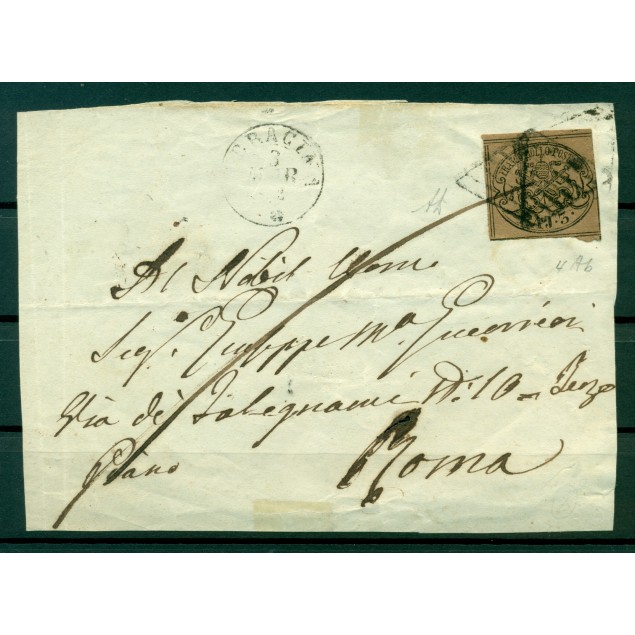 TERRACINA
3
FRANCO BOLLO POSTALE
BAJ. 3
4Ab
Al Nobil Uomo
Sig. Giuseppe Ma Guerrieri
Via de' Falegnami N: 10 = Terzo
Piano
Roma